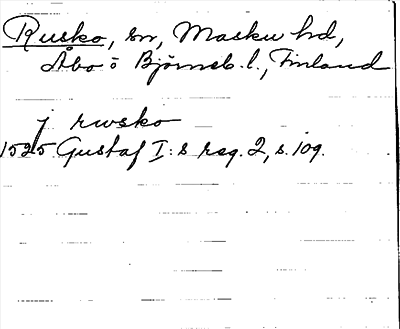 Rusko, sn, Masku hd,
Åbo o Björneb. l., Finland
j rwsko
1525 Gustaf I:s reg. 2, s. 109.